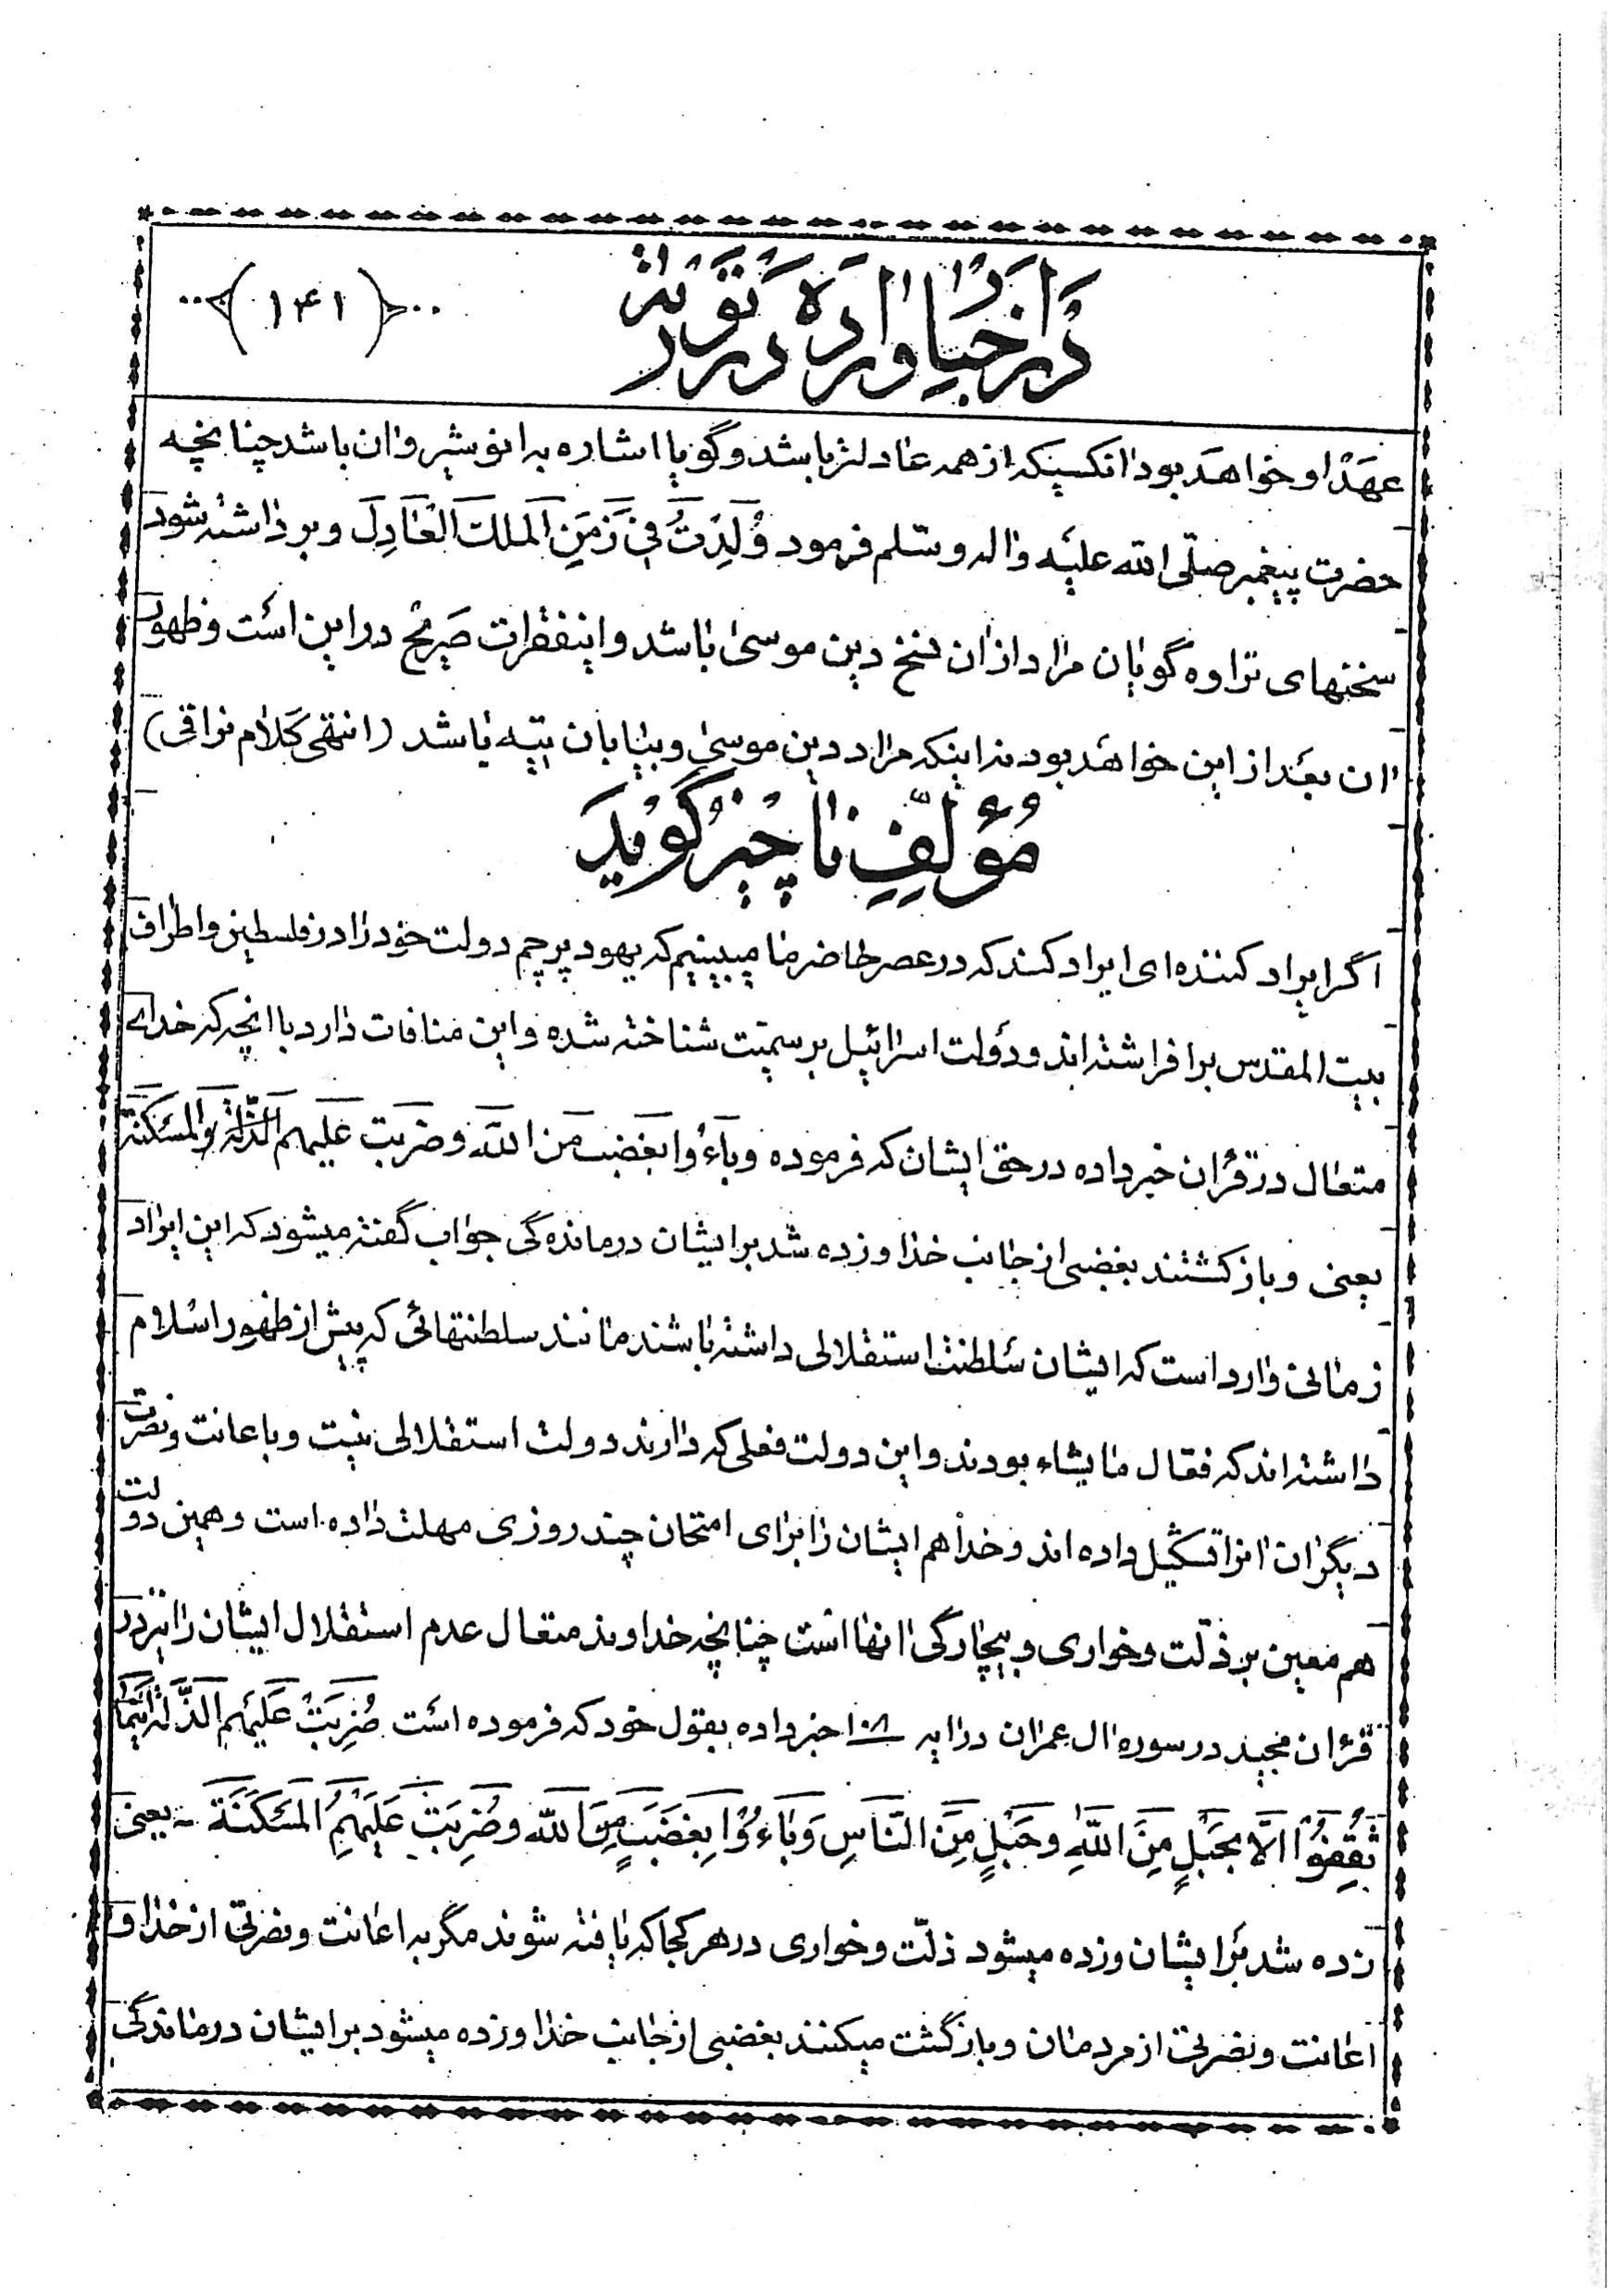 در اخبار وارده در تورات
(۱۴۱)
عهد او خواهد بود انکسیکه از همه عادلتر باشد و گویا اشاره به انوشیروان باشد چنانچه
حضرت پیغمبر صلّی الله علیه واله وسلم فرمود وُلِدْتُ فِی زَمَنِ المَلِكِ العَادِلَ و برداشته شود
سخنهای تراوه گویان مراد از ان نسخ دین موسی باشد و اینفقرات صَریح در این است و ظهور
ان بعد از این خواهد بود نه اینکه مراد دین موسی و بیابان تیه باشد (انتهی کلام نراقی)
مُؤلّفِ ناچیز گوید
اگر ایراد کننده ای ایراد کند که در عصر حاضر ما میبینیم که یهود پرچم دولت خود را در فلسطین و اطراف
بیت المقدس برافراشته اند و دولت اسرائیل برسمیّت شناخته شده و این منافات دارد با انچه که خدای
متعال در قرءان خبر داده در حق ایشان که فرموده وبآءُوا بغضب من الله وضربت علیهم الذّلة والمسکنة
یعنی و بازکشتند بغضبی از جانب خدا و زده شد بر ایشان درمانده گی جواب گفته میشود که این ایراد
زمانی وارد است که ایشان سلطنت استقلالی داشته باشند مانند سلطنتهائی که پیش از ظهور اسلام
داشته اند که فعّال ما یشاء بودند و این دولت فعلی که دارند دولت استقلالی نیست و باعانت و نصرت
دیگران انرا تشکیل داده اند و خدا هم ایشان را برای امتحان چند روزی مهلت داده است و همین دولت
هم معین بر ذلّت و خواری و بیچارگی انها است چنانچه خداوند متعال عدم استقلال ایشان را نیز در
قرءان مجید در سوره ال عمران در ایه ۱۰۸ خبر داده بقول خود که فرموده است ضُرِبَتْ عَلَیْهِمُ الذِّلَّةُ اَیْنَمَا
ثُقِفُوْا اِلّا بِحَبْلٍ مِنَ اللّهِ وحَبْلٍ مِنَ النّاسِ وَبَاءُوْا بِغَضَبٍ مِنَ اللّه وضُرِبَتْ عَلَیْهِمُ المَسْکَنَة - یعنی
زده شد بر ایشان و زده میشود ذلّت و خواری در هر کجا که یافته شوند مگر به اعانت و نصرتی از خدا و
اعانت و نصرتی از مردمان و بازگشت میکنند بغضبی از جانب خدا و زده میشود بر ایشان درماندگی